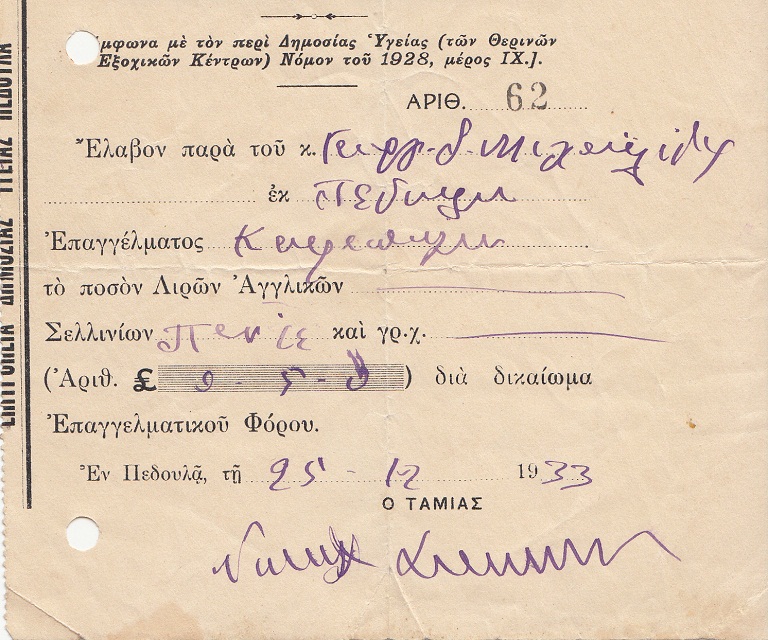 μφωνα μὲ τὸν περὶ Δημοσίας Ὑγείας (τῶν Θερινῶν
Ἐξοχικῶν Κέντρων) Νόμον τοῦ 1928, μέρος IX.].
ΑΡΙΘ. 62
Ἔλαβον παρὰ τοῦ κ. Γεωργ. Δ. Μιχαηλίδη
ἐκ Πεδουλα
Ἐπαγγέλματος
τὸ ποσὸν Λιρῶν Ἀγγλικῶν
Σελλινίων πεντε καὶ γρ.χ.
(Ἀριθ. £ 0 - 5 - 0) διὰ δικαίωμα
Ἐπαγγελματικοῦ Φόρου.
Ἐν Πεδουλᾷ, τῇ 25 - 12 1933
Ο ΤΑΜΙΑΣ
ΔΗΜΟΣΙΑΣ ΥΓΕΙΑΣ ΠΕΔΟΥΛΑ